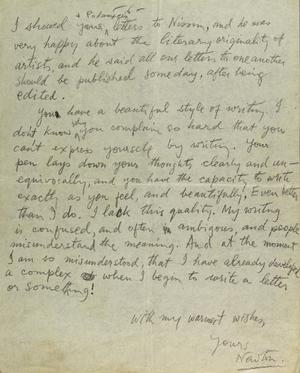 I showed your letters to Nissim, and he was
very happy about the literary originality of
artists, and he said all our letters to one another
should be published some day, after being
edited.
You have a beautiful style of writing. I
don't know why you complain so hard that you
can't express yourself by writing. Your
pen lays down your thoughts clearly and un-
equivocally, and you have the capacity to write
exactly as you feel, and beautifully! Even better
than I do. I lack this quality. My writing
is confused, and often ambigous, and people
misunderstand the meaning. And at the moment
I am so misunderstood, that I have already developed
a complex when I begin to write a letter
or something!
With my warmest wishes,
Yours,
Newton.